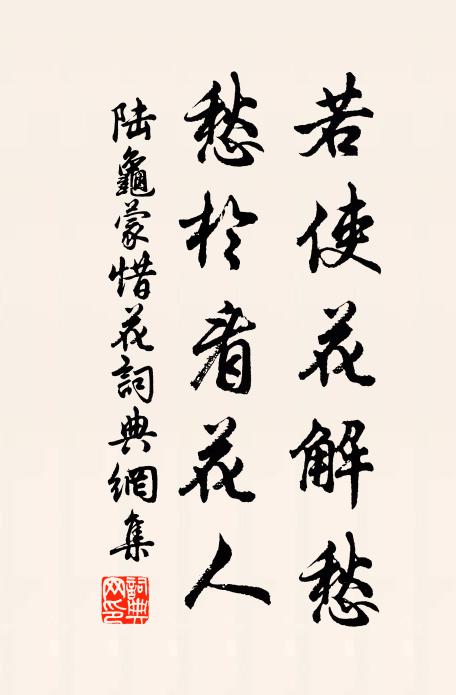 若使花解愁
愁於看花人
陆龜蒙惜花詞典網集
詞典網印